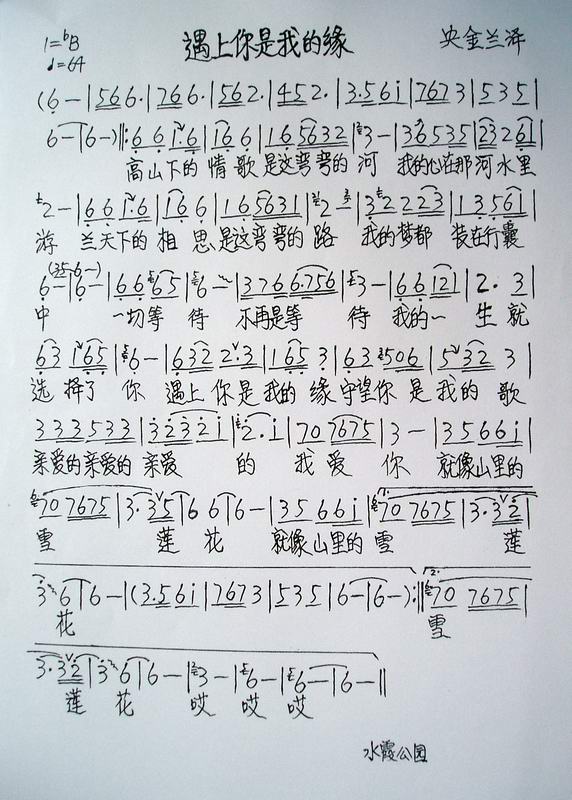 遇上你是我的缘 央金兰泽
1=♭B
♩=64
(6 - | 5 6 6· | 7 6 6· | 5 6 2· | 4 5 2· | 3·5 6 i | 7 6 7 3 | 5 3 5 |
6 - | 6 - ) ‖: 6 6 1·6 | 1 6 6 | 1 6 5 6 3 2 | 3 - | 3 6 5 3 5 | 2 3 2 6 1 |
高山下的 情歌 是这弯弯的 河 我的心在那河水里
2 - | 6 6 1·6 | 1 6 6 | 1 6 5 6 3 1 | 2 - | 3 2 2 2 3 | 1 3 5 6 1 |
游 兰天下的 相 思 是这弯弯的 路 我的梦都 装在行囊
(35 - 6 -)
6 - | 6 - | 6 6 6 5 | 6 - | 3 7 6 6 6·7 5 6 | 3 - | 6 6 1 2 1 | 2· 3 |
中 一切等 待 不再是等 待 我的一 生 就
6 3 1 6 5 | 6 - | 6 3 2 2 3 | 1 6 5 3 | 6 3 5 0 6 | 5 3 2 3 |
选 择了 你 遇上 你是 我的 缘 守望你 是 我的 歌
3 3 3 5 3 3 | 3 2 3 2 i | 2· i | 7 0 7 6 7 5 | 3 - | 3 5 6 6 i |
亲爱的亲爱的 亲爱 的 我 爱 你 就像山里的
7 0 7 6 7 5 | 3·3 5 | 6 6 | 6 - | 3 5 6 6 i | 7 0 7 6 7 5 | 3·3 2 |
雪 莲 花 就像山里的 雪 莲
3 6 | 6 - | (3·5 6 i | 7 6 7 3 | 5 3 5 | 6 - | 6 - ) :‖ 7 0 7 6 7 5 |
花 雪
3·3 2 | 3 6 | 6 - | 3 - | 6 - | 6 - | 6 - ‖
莲 花 哎 哎 哎
水霞公园